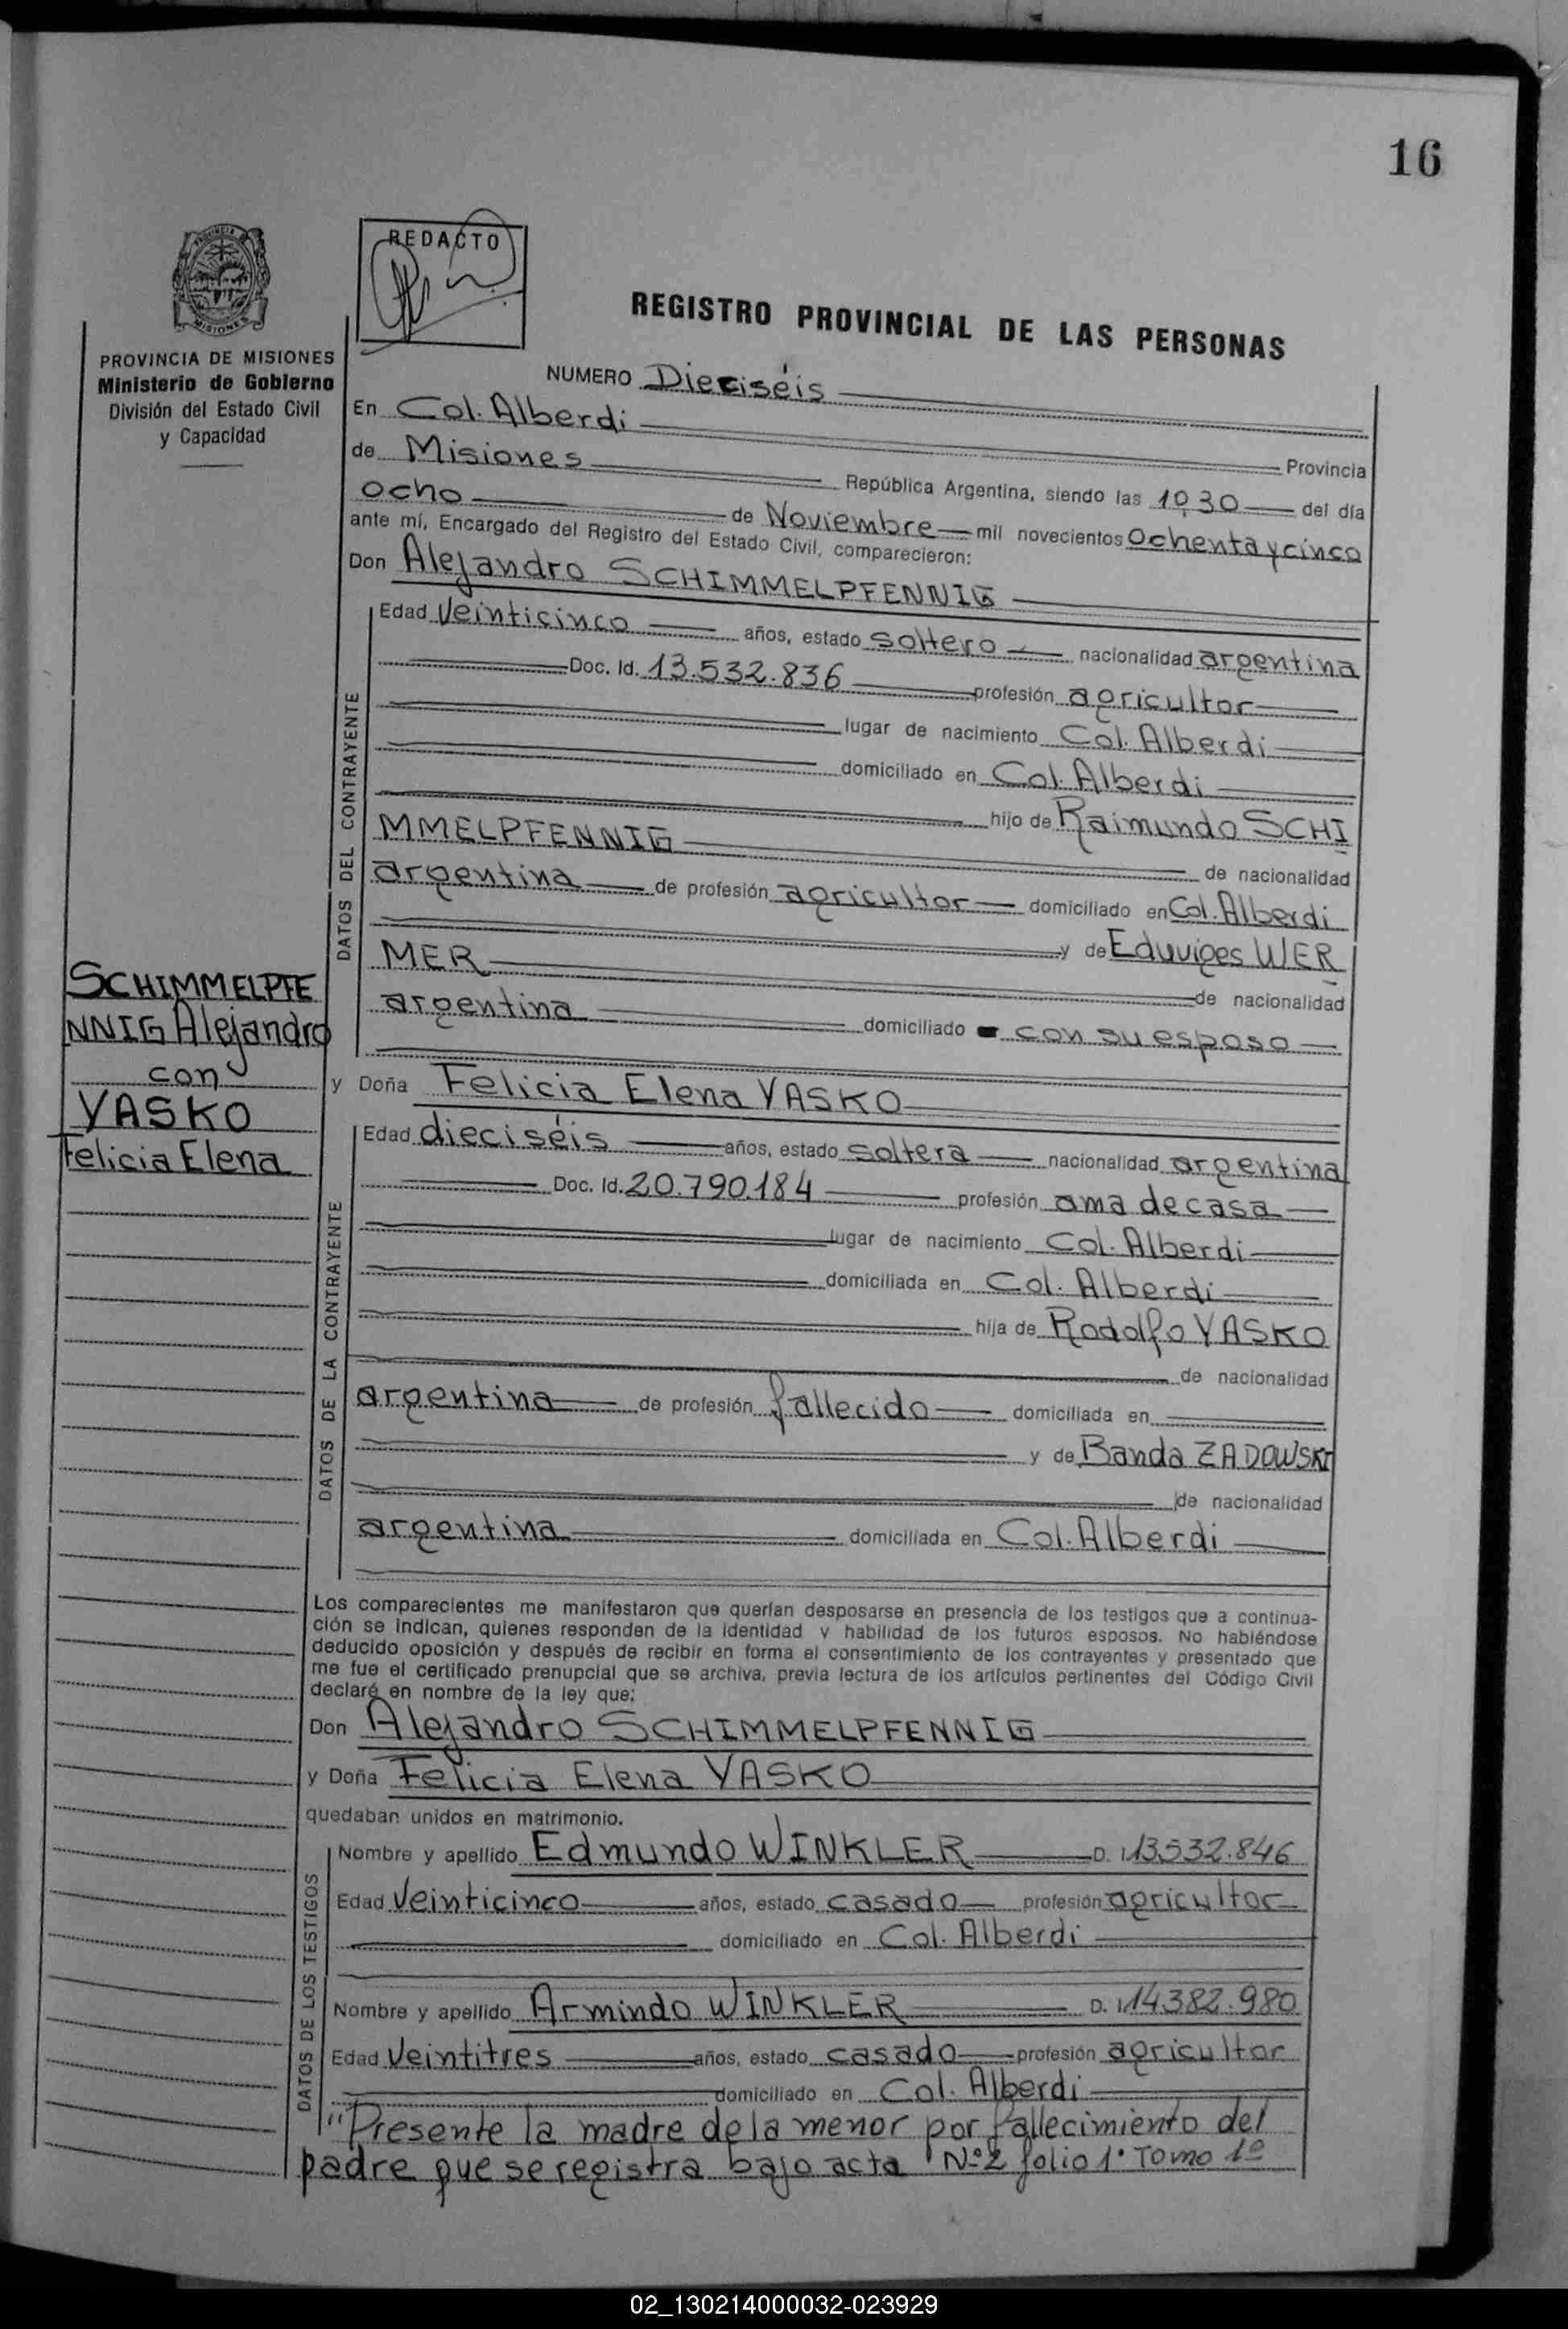 16
REDACTO
REGISTRO PROVINCIAL DE LAS PERSONAS
PROVINCIA DE MISIONES
Ministerio de Gobierno
División del Estado Civil
y Capacidad
NUMERO Dieciséis
En Col. Alberdi
Provincia
de Misiones República Argentina, siendo las 10,30 del día
ocho de Noviembre mil novecientos Ochenta y cinco
ante mí, Encargado del Registro del Estado Civil, comparecieron:
Don Alejandro SCHIMMELPFENNIG
DATOS DEL CONTRAYENTE
Edad Veinticinco años, estado soltero nacionalidad argentina
Doc. Id. 13.532.836 profesión agricultor
lugar de nacimiento Col. Alberdi
domiciliado en Col. Alberdi
hijo de Raimundo SCHI
MMELPFENNIG de nacionalidad
argentina de profesión agricultor domiciliado en Col. Alberdi
y de Eduviges WER
MER de nacionalidad
argentina domiciliado con su esposo
SCHIMMELPFE
NNIG Alejandro
con
YASKO
Felicia Elena
y Doña Felicia Elena YASKO
DATOS DE LA CONTRAYENTE
Edad dieciséis años, estado soltera nacionalidad argentina
Doc. Id. 20.790.184 profesión ama de casa
lugar de nacimiento Col. Alberdi
domiciliada en Col. Alberdi
hija de Rodolfo YASKO
de nacionalidad
argentina de profesión fallecido domiciliada en
y de Banda ZADOWSKI
de nacionalidad
argentina domiciliada en Col. Alberdi
Los comparecientes me manifestaron que querían desposarse en presencia de los testigos que a continua-
ción se indican, quienes responden de la identidad y habilidad de los futuros esposos. No habiéndose
deducido oposición y después de recibir en forma el consentimiento de los contrayentes y presentado que
me fue el certificado prenupcial que se archiva, previa lectura de los artículos pertinentes del Código Civil
declaré en nombre de la ley que:
Don Alejandro SCHIMMELPFENNIG
y Doña Felicia Elena YASKO
quedaban unidos en matrimonio.
DATOS DE LOS TESTIGOS
Nombre y apellido Edmundo WINKLER D. I 13.532.846
Edad Veinticinco años, estado casado profesión agricultor
domiciliado en Col. Alberdi
Nombre y apellido Armindo WINKLER D. I 14.382.980
Edad Veintitres años, estado casado profesión agricultor
domiciliado en Col. Alberdi
"Presente la madre de la menor por fallecimiento del
padre que se registra bajo acta Nº 2 folio 1° Tomo 1º
02_130214000032-023929